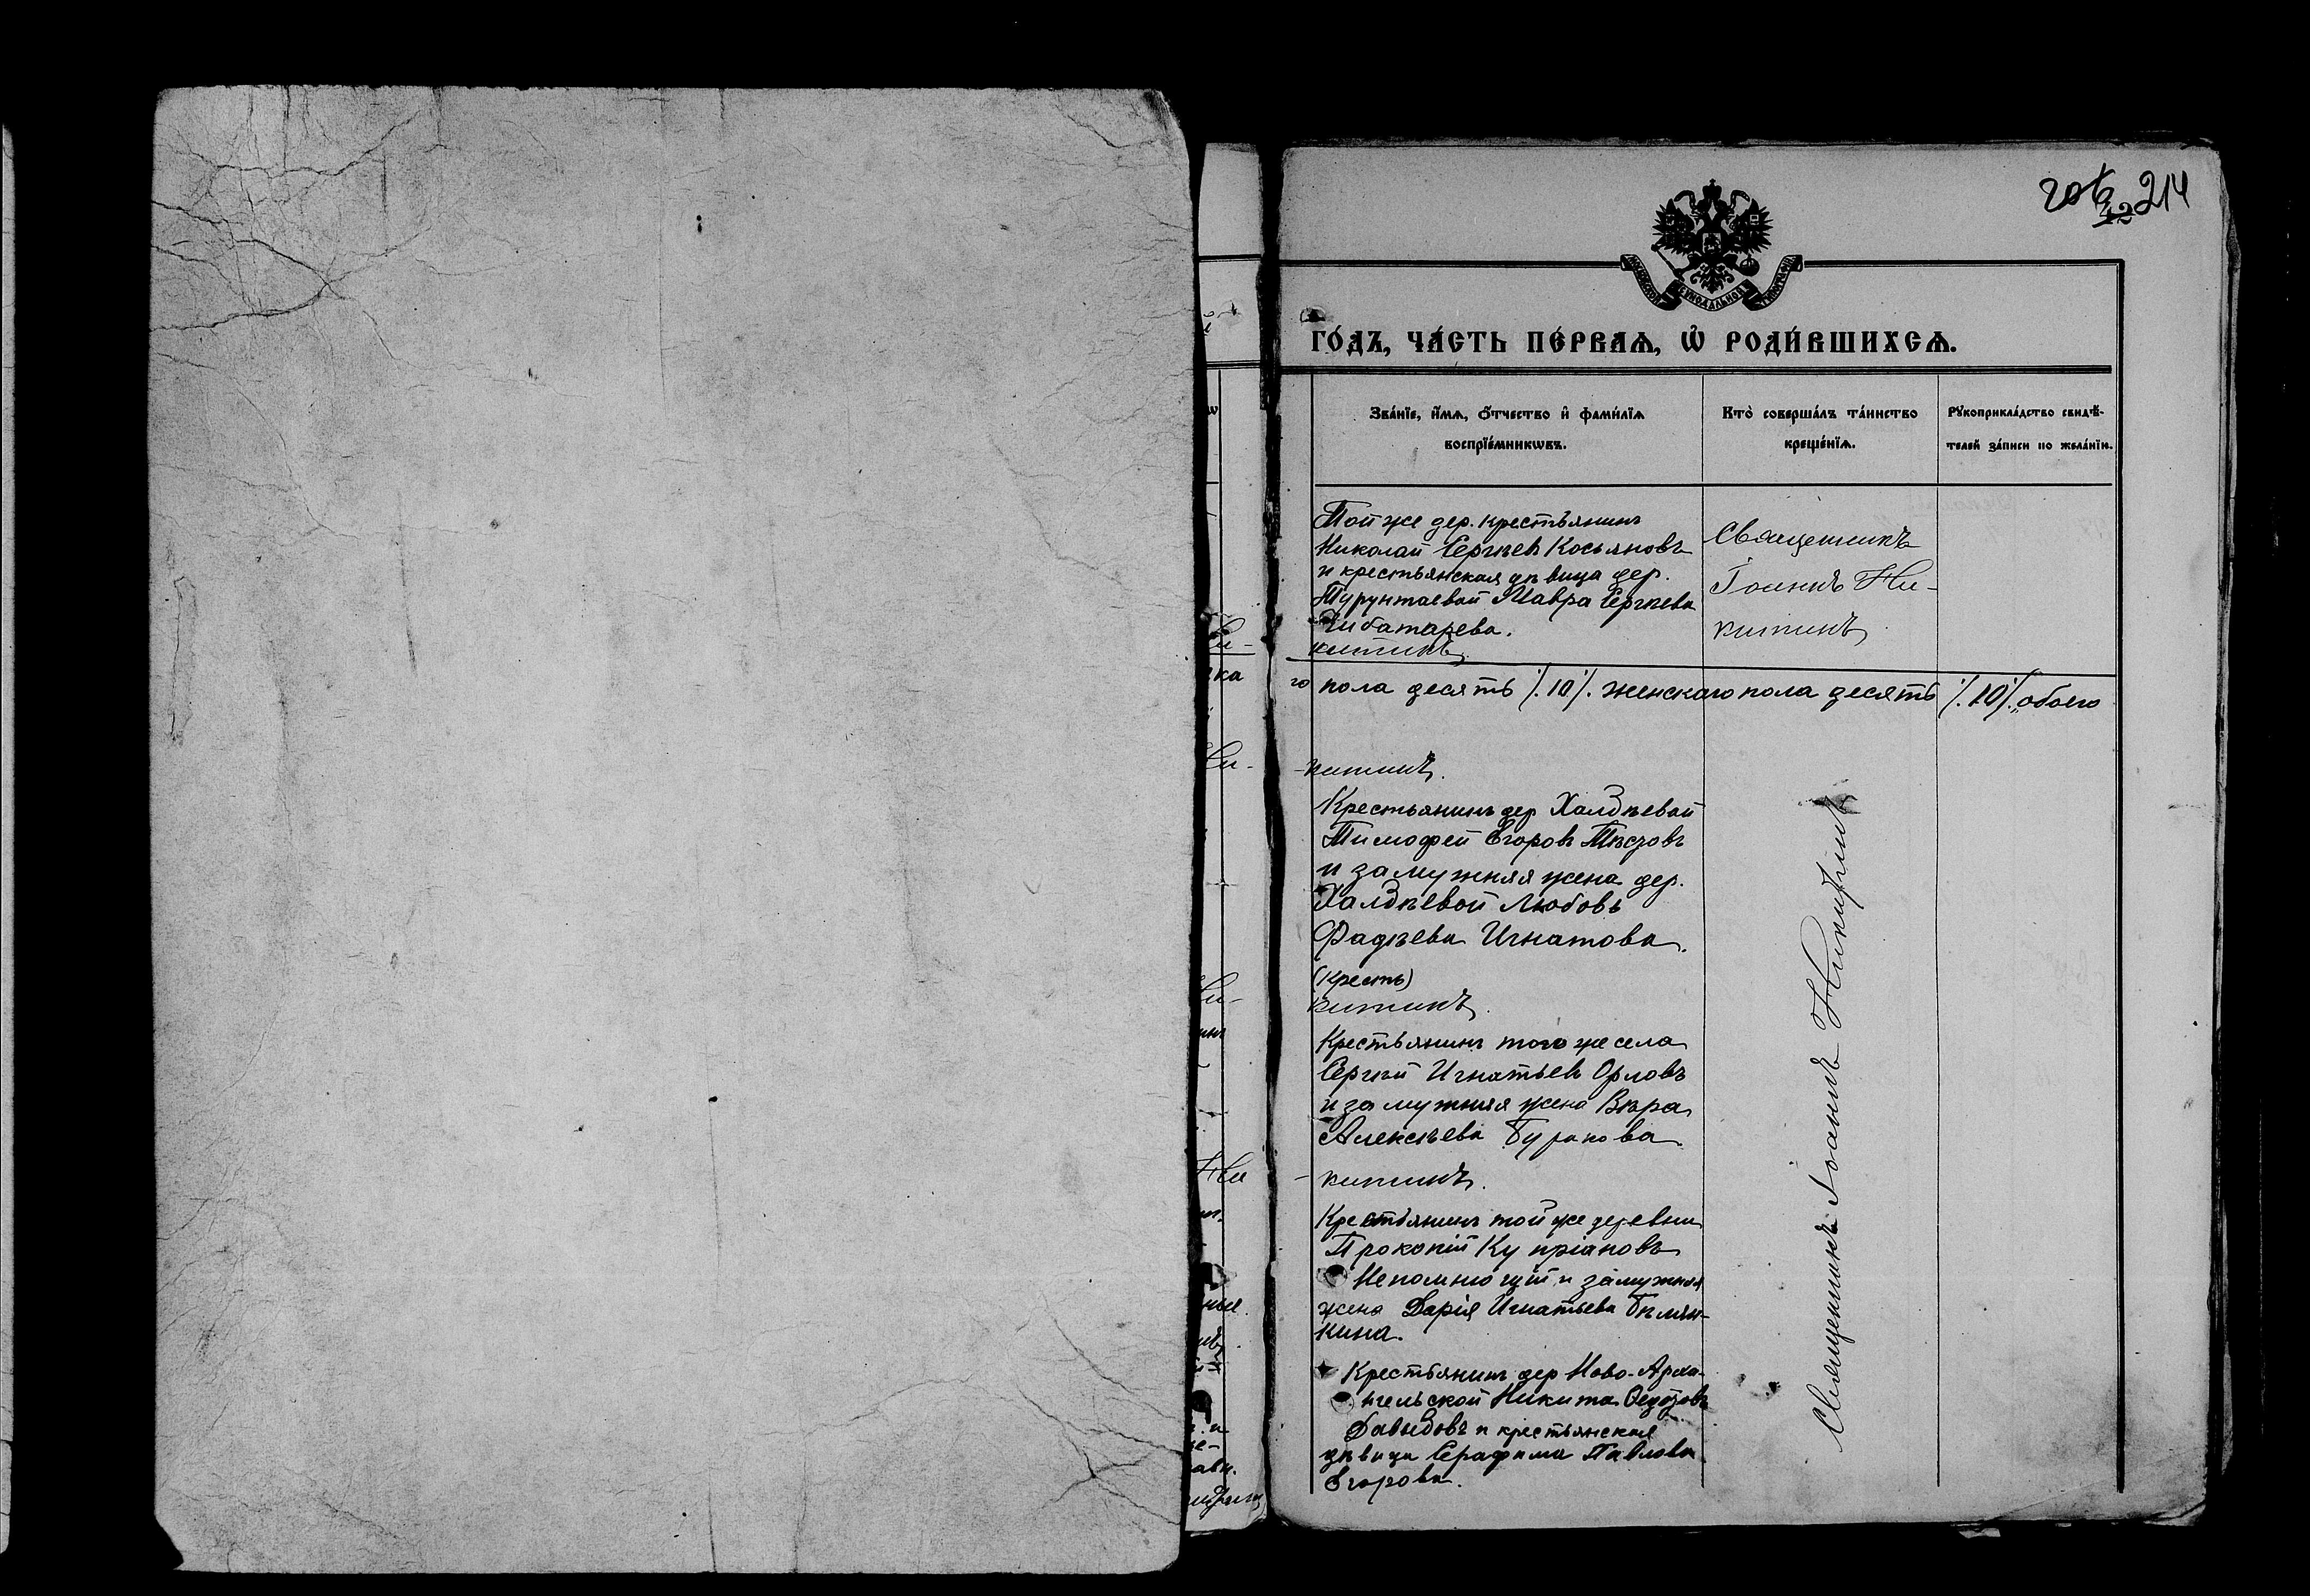 214
42
МОСКОВСКОЙ СѴНОДАЛЬНОЙ ТИПОГРАФІИ
го́дъ, ча́сть пе́рваѧ, ѡ҆ роди́вшихсѧ.
Зва́нїе, и҆́мѧ, ѻ҆́тчество и҆ фами́лїѧ
воспрїе́мникѡвъ.
Кто̀ соверша́лъ та́инство
креще́нїѧ.
Рꙋкоприкла́дство свидѣ́-
телей за́писи по жела́нїю.
Той же дер. крестьянинъ
Николай Сергѣевъ Косьяновъ
и крестьянская дѣвица дер.
Турунтаевой Мавра Сергѣева
Чибатарева.
китинъ.
Священникъ
Іоаннъ Ни-
китинъ
го пола десять /.10/. женскаго пола десять /.10/. обоего
-китинъ.
Крестьянинъ дер Халдѣевой
Тимофей Егоровъ
и замужняя жена дер.
Халдѣевой Любовь
Фадѣева Игнатова.
(Кресть)
китинъ.
Крестьянинъ того же села
Сергѣй Игнатьевъ Орловъ
и замужняя жена Вѣра
Алексѣева Буракова
- китинъ.
Крестьянинъ той же деревни
Прокопій Купріановъ
Непомнющій и замужняя
жена Дарія Игнатьева Бѣлян-
кина.
Крестьянинъ дер Ново-Арха-
нгельской Никита
Давыдовъ и крестьянская
дѣвица Серафима Павлова
Егорова.
Священникъ Іоаннъ Никитинъ